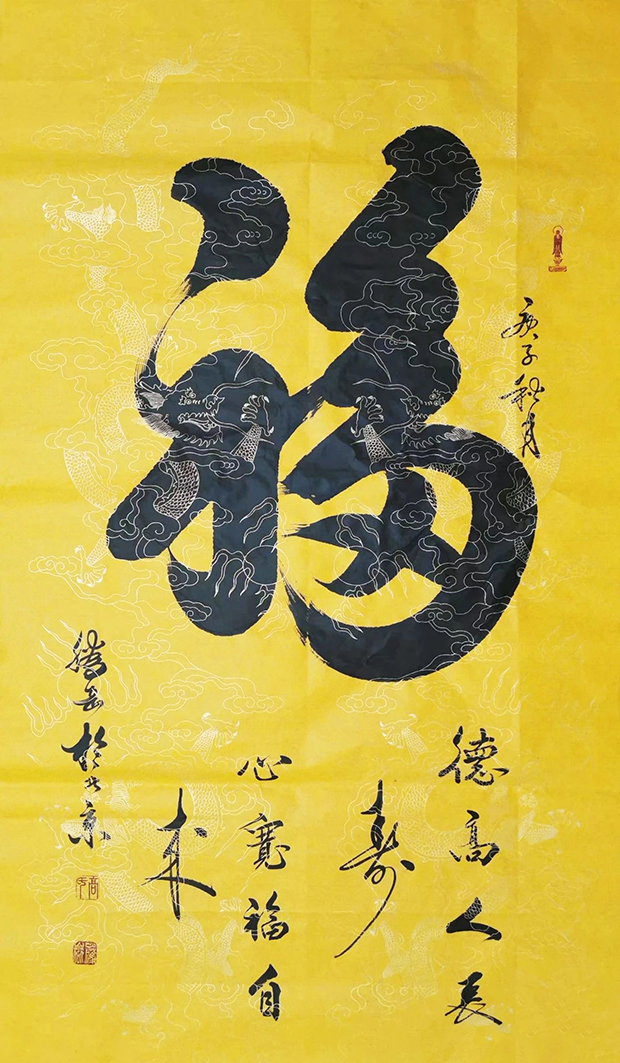 福
庚子秋月
德高人長
寿
心寬福自
来
於北京